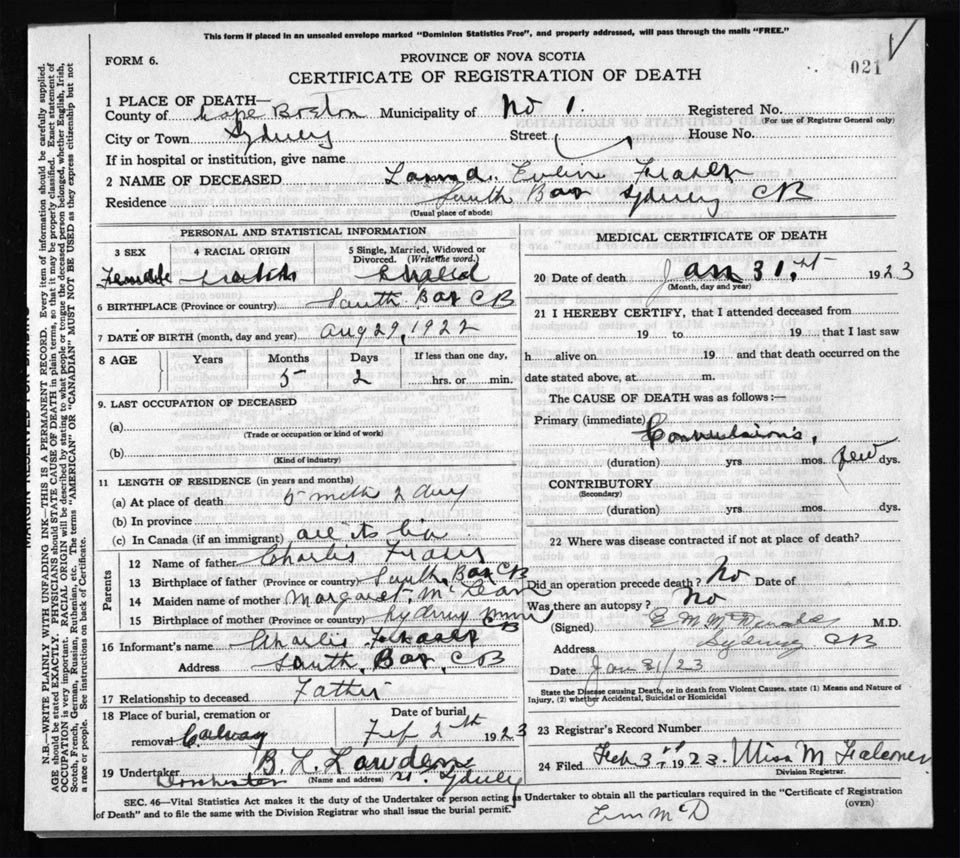 This form if placed in an unsealed envelope marked "Dominion Statistics Free", and properly addressed, will pass through the mails "FREE."
FORM 6.
PROVINCE OF NOVA SCOTIA
CERTIFICATE OF REGISTRATION OF DEATH
021
1 PLACE OF DEATH—
County of Cape Breton Municipality of No 1. Registered No.
(For use of Registrar General only)
City or Town Sydney Street House No.
If in hospital or institution, give name
2 NAME OF DECEASED Fraser
Residence South Bar Sydney CB
(Usual place of abode)
PERSONAL AND STATISTICAL INFORMATION
3 SEX 4 RACIAL ORIGIN 5 Single, Married, Widowed or Divorced. (Write the word.)
Female Scotch
6 BIRTHPLACE (Province or country) South Bar CB
7 DATE OF BIRTH (month, day and year) Aug 29, 1922
8 AGE Years Months Days If less than one day,
5 2 hrs. or min.
9. LAST OCCUPATION OF DECEASED
(a)
(Trade or occupation or kind of work)
(b)
(Kind of industry)
11 LENGTH OF RESIDENCE (in years and months)
(a) At place of death 5 mths 2 day
(b) In province
(c) In Canada (if an immigrant) all its life
Parents
12 Name of father Charlie Fraser
13 Birthplace of father (Province or country) South Bar CB
14 Maiden name of mother Margaret McLean
15 Birthplace of mother (Province or country) Sydney Mines CB
16 Informant's name Charlie Fraser
Address South Bar, CB
17 Relationship to deceased Father
18 Place of burial, cremation or removal Calvary
Date of burial Feb 2th 1923
19 Undertaker B. L.
(Name and address)
Dorchester st. Sydney
MEDICAL CERTIFICATE OF DEATH
20 Date of death Jan 31st 1923
(Month, day and year)
21 I HEREBY CERTIFY, that I attended deceased from
19 to 19 that I last saw
h alive on 19 and that death occurred on the
date stated above, at m.
The CAUSE OF DEATH was as follows:—
Primary (immediate) Convulsions,
(duration) yrs. mos. few dys.
CONTRIBUTORY
(Secondary)
(duration) yrs. mos. dys.
22 Where was disease contracted if not at place of death?
Did an operation precede death? No Date of
Was there an autopsy? No
(Signed) E M McDonald M.D.
Address Sydney CB
Date Jan 31/23
State the Disease causing Death, or in death from Violent Causes, state (1) Means and Nature of Injury, (2) whether Accidental, Suicidal or Homicidal
23 Registrar's Record Number
24 Filed Feb 3rd 1923. Miss M Falconer
Division Registrar.
SEC. 46—Vital Statistics Act makes it the duty of the Undertaker or person acting as Undertaker to obtain all the particulars required in the "Certificate of Registration
of Death" and to file the same with the Division Registrar who shall issue the burial permit.
(OVER)
Em McD
N.B.—WRITE PLAINLY WITH UNFADING INK—THIS IS A PERMANENT RECORD. Every item of information should be carefully supplied.
AGE should be stated EXACTLY. PHYSICIANS should STATE CAUSE OF DEATH in plain terms, so that it may be properly classified. Exact statement of
OCCUPATION is very important. RACIAL ORIGIN will be described by stating to what people or tongue the deceased person belonged, whether English, Irish,
Scotch, French, German, Russian, Ruthenian, etc. The terms "AMERICAN" OR "CANADIAN" MUST NOT BE USED as they express citizenship but not
a race or people. See instructions on back of Certificate.